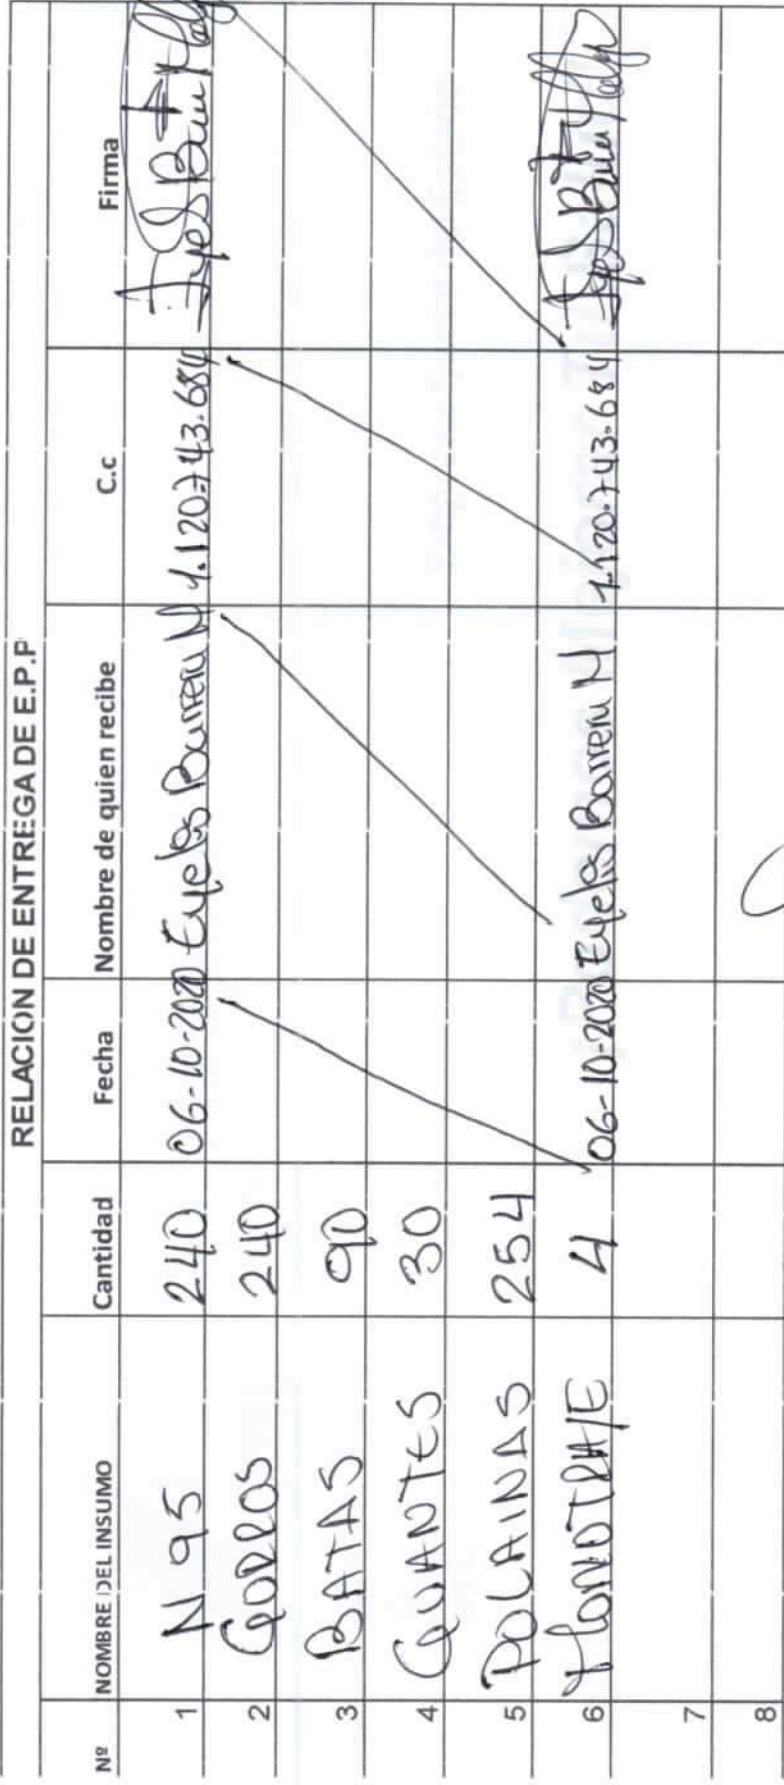 RELACION DE ENTREGA DE E.P.P
Nº NOMBRE DEL INSUMO Cantidad Fecha Nombre de quien recibe C.c Firma
1 N95 240 06-10-2020 Barrera M 1.120.743.684
2 GORROS 240
3 BATAS 90
4 GUANTES 30
5 POLAINAS 254
6 MONOTRAJE 4 06-10-2020 Barrera M 1.120.743.684
7
8